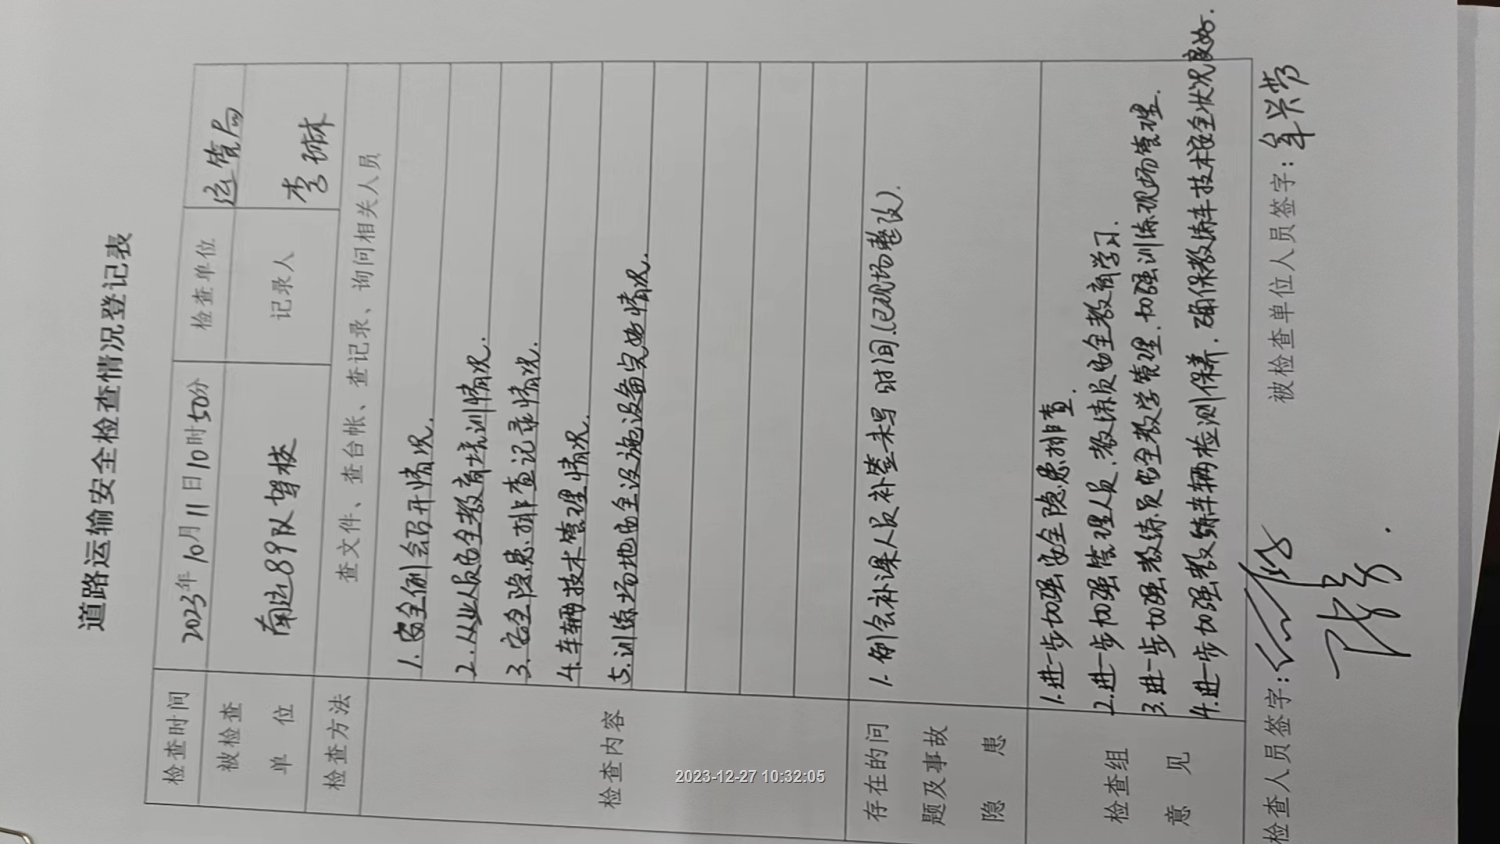 道路运输安全检查情况登记表
检查时间 2023年10月11日10时50分 检查单位 运管局
被检查单位 南运89队驾校 记录人 李琳
检查方法 查文件、查台帐、查记录、询问相关人员
检查内容
1.安全例会召开情况.
2.从业人员安全教育培训情况.
3.安全隐患排查记录情况.
4.车辆技术管理情况.
5.训练场地安全设施设备完好情况.
存在的问题及事故隐患
1.例会补课人员补签未写时间.(已现场整改).
检查组意见
1.进一步加强安全隐患排查.
2.进一步加强管理人员.教练员安全教育学习.
3.进一步加强教练员安全教学管理.加强训练现场管理.
4.进一步加强教练车辆检测保养.确保教练车技术安全状况良好.
检查人员签字: 被检查单位人员签字:
2023-12-27 10:32:05